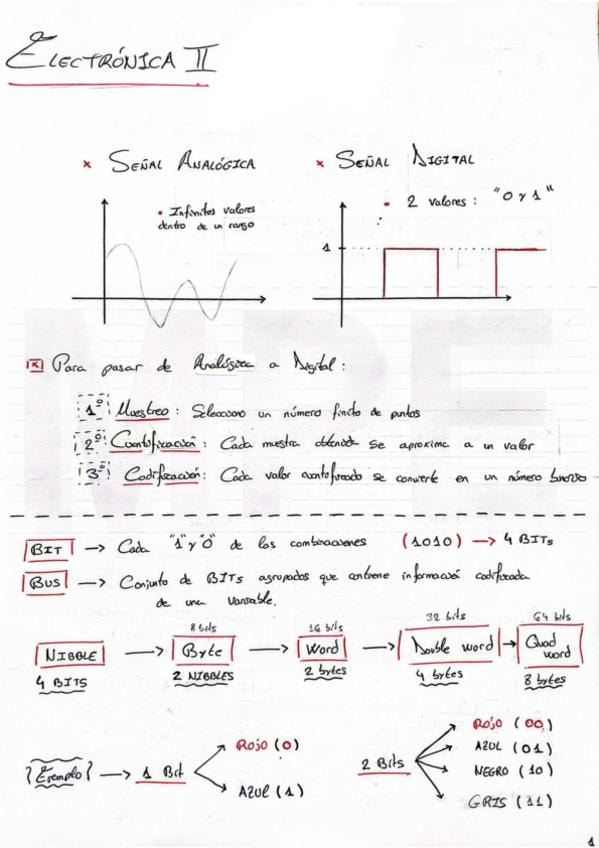 ELECTRÓNICA II
× SEÑAL ANALÓGICA
• Infinitos valores
dentro de un rango
× SEÑAL DIGITAL
• 2 valores: "0 y 1"
1
Para pasar de Analógica a Digital:
1º Muestreo: Selecciono un número finito de puntos
2º Cuantificación: Cada muestra obtenida se aproxima a un valor
3º Codificación: Cada valor cuantificado se convierte en un número binario
BIT → Cada "1" y "0" de las combinaciones (1010) → 4 BITs
BUS → Conjunto de BITs agrupados que contiene información codificada
de una variable.
8 bits 16 bits 32 bits 64 bits
NIBBLE → Byte → Word → Double word → Quad word
4 BITS 2 NIBBLES 2 bytes 4 bytes 8 bytes
Ejemplo → 1 Bit
Rojo (0)
AZUL (1)
2 Bits
Rojo (00)
AZUL (01)
NEGRO (10)
GRIS (11)
1
MPE